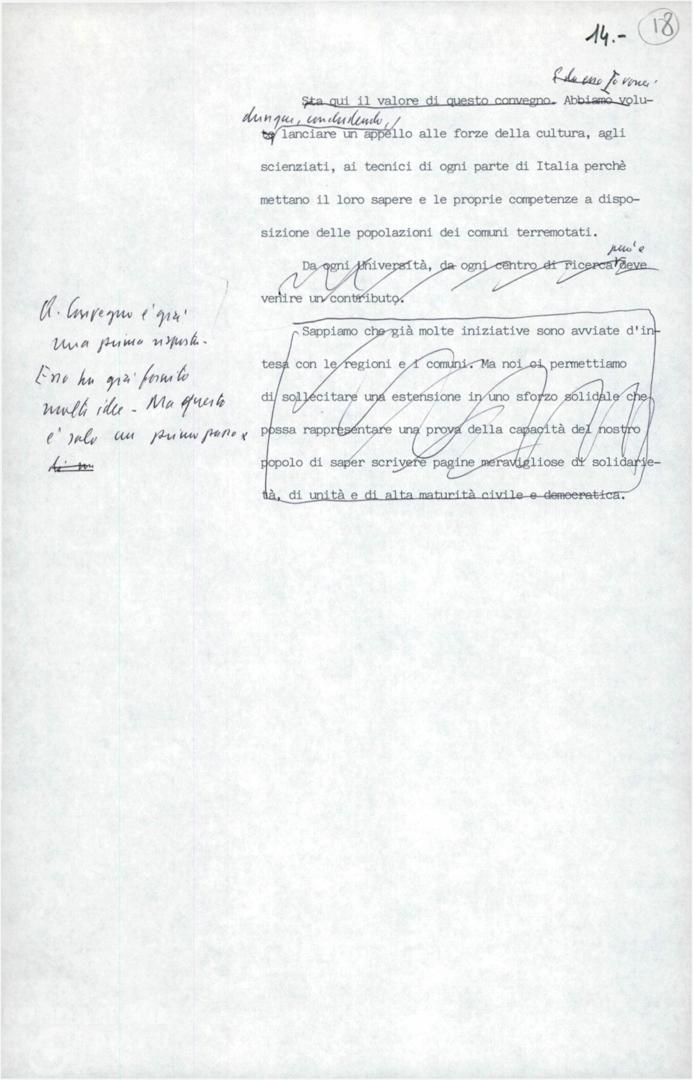 14.-
18
Sta qui il valore di questo convegno. Abbiamo volu-
dunque, concludendo,
to lanciare un appello alle forze della cultura, agli
scienziati, ai tecnici di ogni parte di Italia perchè
mettano il loro sapere e le proprie competenze a dispo-
sizione delle popolazioni dei comuni terremotati.
può e
Da ogni Università, da ogni centro di ricerca deve
venire un contributo.
Il Convegno è già
una prima risposta.
Esso ha già fornito
molte idee - Ma questo
è solo un primo passo
Sappiamo che già molte iniziative sono avviate d'in-
tesa con le regioni e i comuni. Ma noi ci permettiamo
di sollecitare una estensione in uno sforzo solidale che
possa rappresentare una prova della capacità del nostro
popolo di saper scrivere pagine meravigliose di solidarie-
tà, di unità e di alta maturità civile e democratica.